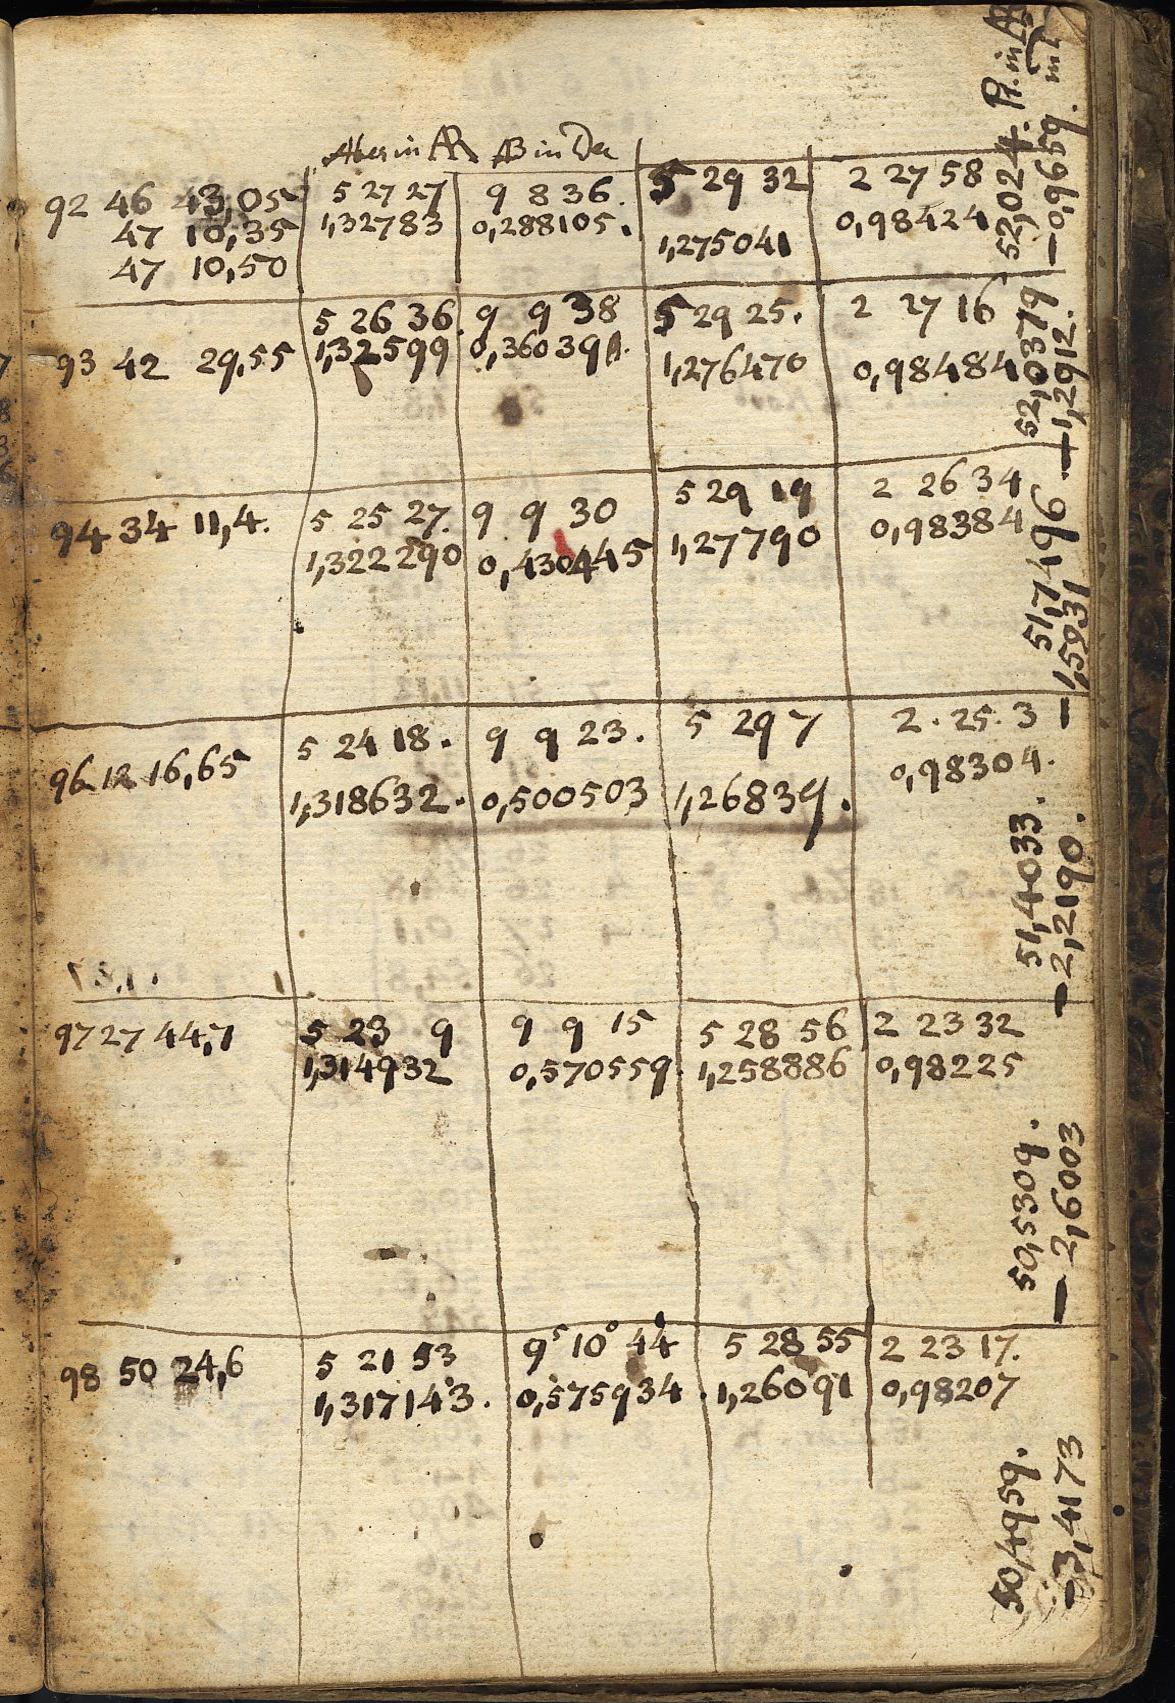 Aber in AR AB in Dec
92 46 43,05 5 27 27 9 8 36. 5 29 32 2 27 58
47 10,35 1,32783 0,288105. 1,275041 0,98424
47 10,50
52,0224. Pr. in AR
—0,9659. in
5 26 36. 9 9 38 5 29 25. 2 27 16
93 42 29,55 1,32599 0,360391. 1,276470 0,98484
52,0379
—1,2912.
94 34 11,4. 5 25 27. 9 9 30 5 29 19 2 26 34
1,322290 0,430445 1,27790 0,98384
51,7496
—1,5931
96 12 16,65 5 24 18. 9 9 23. 5 29 7 2. 25. 3
1,318632. 0,500503 1,26839. 0,98304.
51,4033.
—2,2190.
97 27 44,7 5 23 9 9 9 15 5 28 56 2 23 32
1,314932 0,570559. 1,258886 0,98225
50,5309.
—2,6003
98 50 24,6 5 21 53 9s 10° 44 5 28 55 2 23 17.
1,317143. 0,575934. 1,26091 0,98207
50,4959.
—3,4173